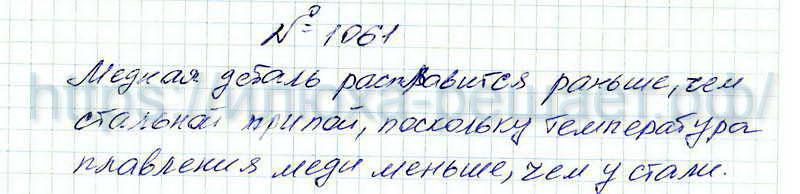 № 1061
Медная деталь расплавится раньше, чем
стальной припой, поскольку температура
плавления меди меньше, чем у стали.